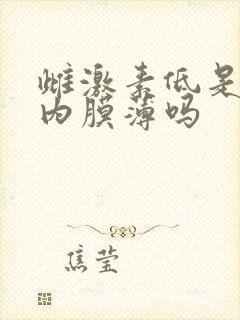 雌激素低是
内膜薄吗
焦莹